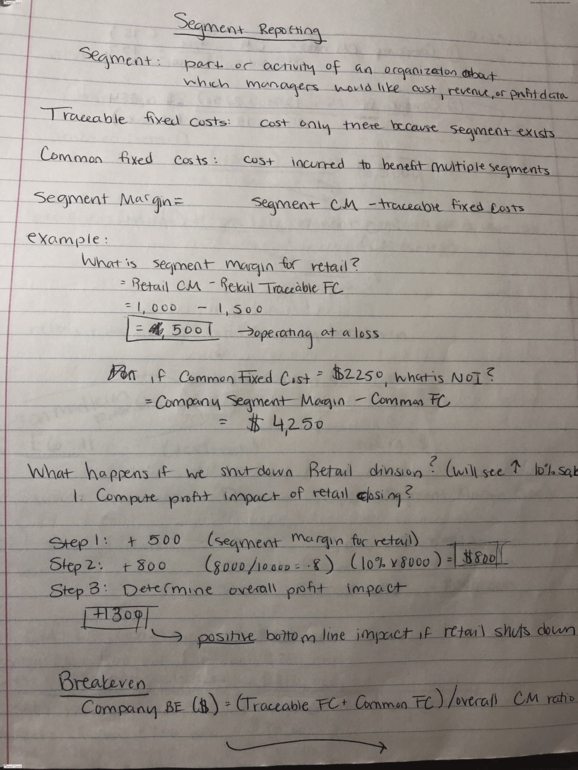 Segment Reporting
Segment: part or activity of an organization about
which managers would like cost, revenue, or profit data
Traceable fixed costs: cost only there because segment exists
Common fixed costs: cost incurred to benefit multiple segments
Segment Margin = Segment CM - traceable fixed costs
example:
What is segment margin for retail?
= Retail CM - Retail Traceable FC
= 1,000 - 1,500
= 500 → operating at a loss
if Common Fixed Cost = $2250, what is NOI?
= Company Segment Margin - Common FC
= $ 4,250
What happens if we shut down Retail division? (will see ↑ 10% sal
1. Compute profit impact of retail closing?
Step 1: + 500 (segment margin for retail)
Step 2: + 800 (8000/10000 = .8) (10% x 8000) = $800
Step 3: Determine overall profit impact
+1300
→ positive bottom line impact if retail shuts down
Breakeven
Company BE ($) = (Traceable FC + Common FC) / overall CM ratio